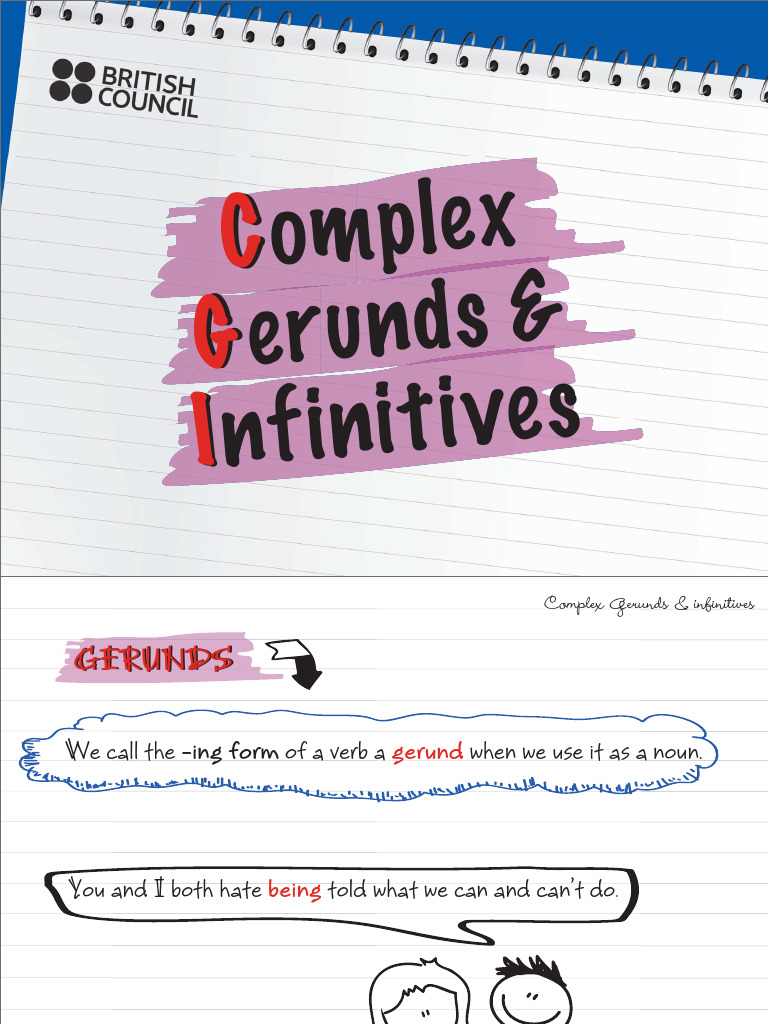 BRITISH
COUNCIL
Complex
Gerunds &
Infinitives
Complex Gerunds & infinitives
GERUNDS
We call the -ing form of a verb a gerund when we use it as a noun.
You and I both hate being told what we can and can't do.